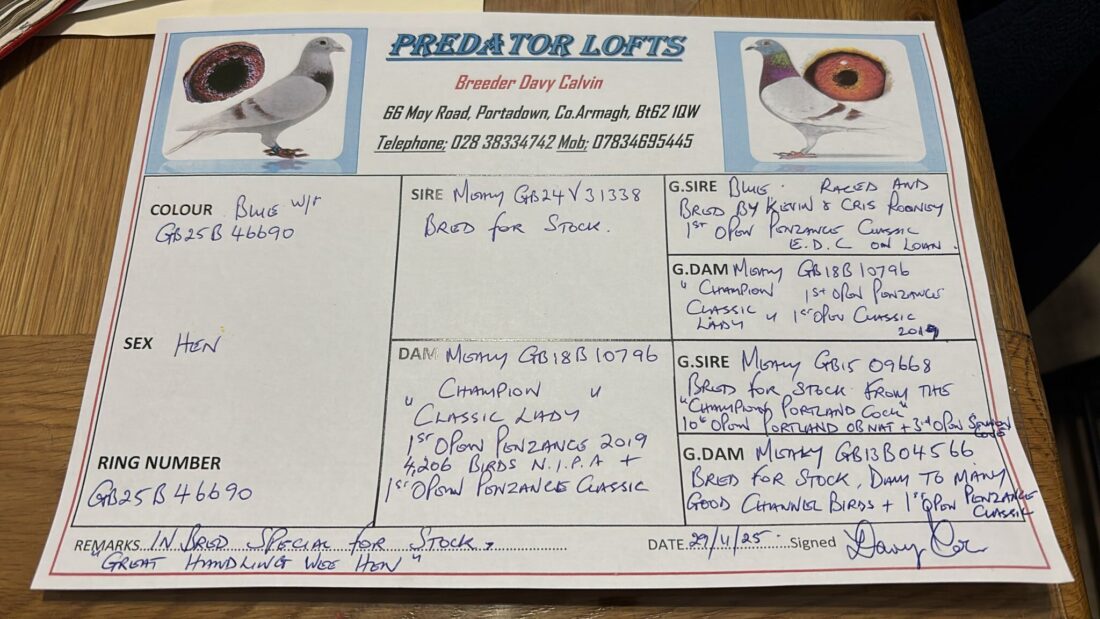 PREDATOR LOFTS
Breeder Davy Calvin
66 Moy Road, Portadown, Co.Armagh, Bt62 1QW
Telephone; 028 38334742 Mob; 07834695445
COLOUR BLUE W/F
GB25B46690
SEX HEN
RING NUMBER
GB25B46690
SIRE MEALY GB24V31338
BRED FOR STOCK.
DAM MEALY GB18B10796
"CHAMPION "
CLASSIC LADY
1ST OPEN PENZANCE 2019
4,206 BIRDS N.I.P.A +
1ST OPEN PENZANCE CLASSIC
G.SIRE BLUE. RACED AND
BRED BY KEVIN & CRIS ROONEY
1ST OPEN PENZANCE CLASSIC
E.D.C ON LOAN.
G.DAM MEALY GB18B10796
"CHAMPION 1ST OPEN PENZANCE
CLASSIC 1ST OPEN CLASSIC
LADY " 2019
G.SIRE MEALY GB15 09668
BRED FOR STOCK FROM THE
"CHAMPION PORTLAND COCK"
10TH OPEN PORTLAND OB NAT + 3RD OPEN
G.DAM MEALY GB13B04566
BRED FOR STOCK, DAM TO MANY
GOOD CHANNEL BIRDS + 1ST OPEN PENZANCE
CLASSIC
REMARKS IN BRED SPECIAL FOR STOCK,
"GREAT HANDLING WEE HEN"
DATE 29/11/25 Signed Davy